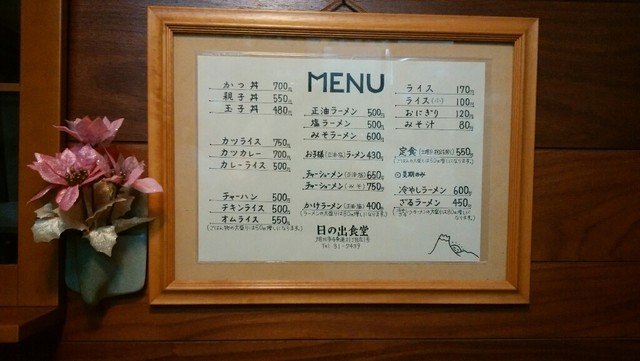 MENU
かつ丼 700円
親子丼 550円
玉子丼 480円
カツライス 750円
カツカレー 700円
カレーライス 500円
チャーハン 500円
チキンライス 500円
オムライス 550円
(ごはん物の大盛りは50円増しになります。)
正油ラーメン 500円
塩ラーメン 500円
みそラーメン 600円
お子様 ラーメン 430円
チャーシューメン 650円
チャーシューメン (みそ) 750円
かけラーメン 400円
(ラーメンの大盛りは80円増しになります。)
日の出食堂
ライス 170円
ライス 100円
おにぎり 120円
みそ汁 80円
定食 550円
◎夏期のみ
冷やしラーメン 600円
ざるラーメン 450円